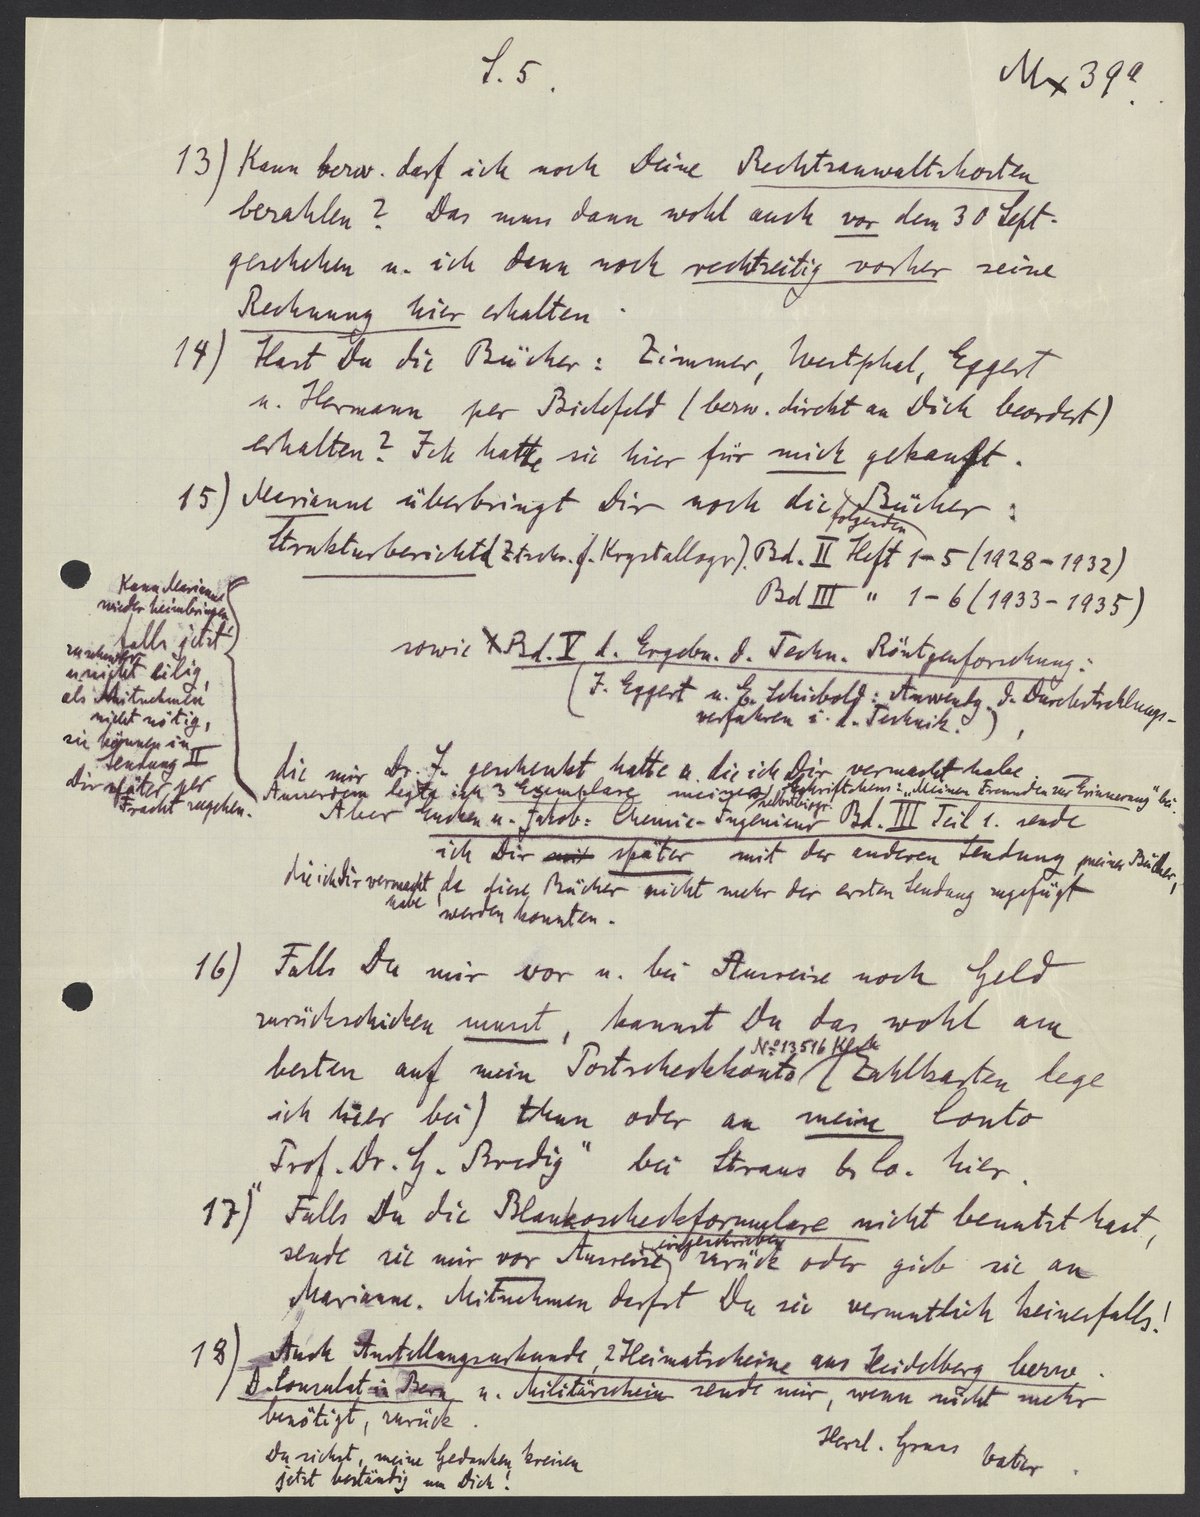 S. 5.
Mx 39a.
13) Kann bezw. darf ich noch Deine Rechtsanwaltskosten
bezahlen? Das muss dann wohl auch vor dem 30 Sept.
geschehen u. ich dann noch rechtzeitig vorher seine
Rechnung hier erhalten.
14) Hast Du die Bücher: Zimmer, Westphal, Eggert
u. Hermann per Bielefeld (bezw. direkt an Dich beordert)
erhalten? Ich hatte sie hier für mich gekauft.
15) Marianne überbringt Dir noch die folgenden Bücher:
Strukturbericht (Ztschr. f. Krystallogr). Bd. II Heft 1-5 (1928-1932)
Bd III " 1-6 (1933-1935)
sowie Bd. V d. Ergebn. d. Techn. Röntgenforschung:
(J. Eggert u. E. Schiebold: Anwendg. d. Durchstrahlungs-
verfahren i. d. Technik.),
die mir Dr. J. geschenkt hatte u. die ich Dir vermacht habe.
Ausserdem legte ich 3 Exemplare meines selbstbiogr. Schriftchens: "Meinen Freunden zur Erinnerung" bei.
Aber Eucken u. Jakob: Chemie-Ingenieur Bd. III Teil 1. sende
ich Dir später mit der anderen Sendung meiner Bücher,
die ich Dir vermacht habe, da diese Bücher nicht mehr der ersten Sendung zugefügt
werden konnten.
Kann Marianne
wieder heimbringen
falls jetzt
zu schwer
u nicht eilig,
als Mitnehmen
nicht nötig,
sie können in
Sendung II
Dir später per
Fracht zugehen.
16) Falls Du mir vor u. bei Ausreise noch Geld
zurückschicken musst, kannst Du das wohl am
besten auf mein Postscheckkonto No 13516 Klsh (Zahlkarten lege
ich hier bei) thun oder an meine Conto
"Prof. Dr. G. Bredig" bei Straus & Co. hier.
17) Falls Du die Blankoscheckformulare nicht benutzt hast,
sende sie mir vor Ausreise (eingeschrieben) zurück oder gieb sie an
Marianne. Mitnehmen darfst Du sie vermutlich keinesfalls!
18) Auch Anstellungsurkunde, 2 Heimatscheine aus Heidelberg bezw.
D. Consulat in Bern u. Militärschein sende mir, wenn nicht mehr
benötigt, zurück.
Herzl. Gruss Vater.
Du siehst, meine Gedanken kreisen
jetzt beständig um Dich!